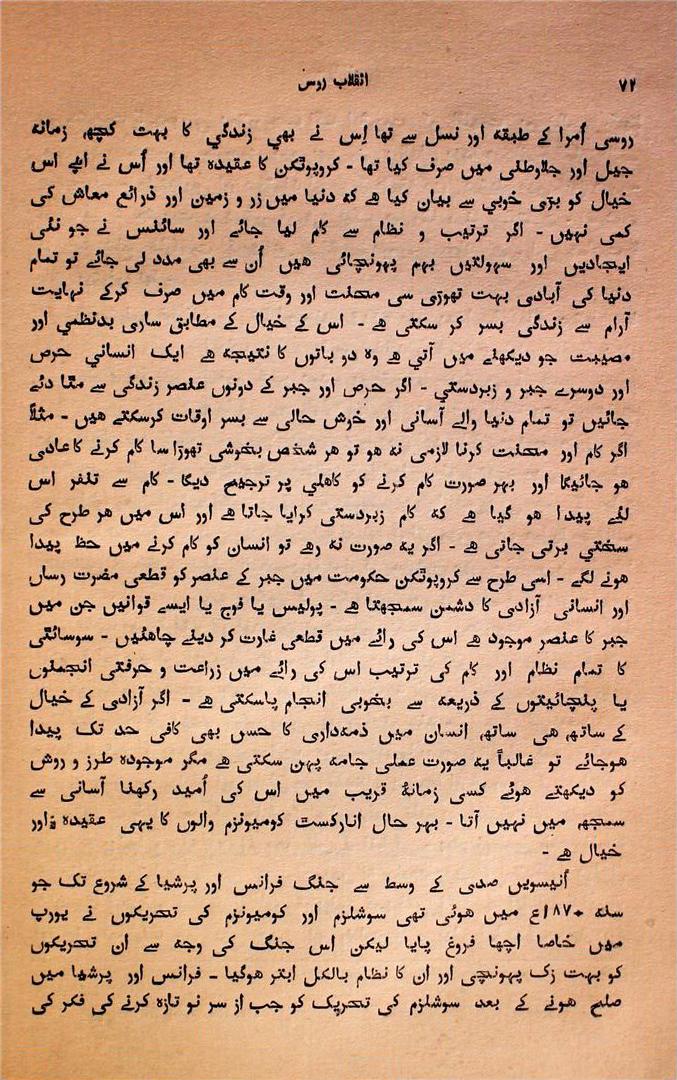 ۷۲
انقلاب روس
روسی اُمرا کے طبقہ اور نسل سے تھا اِس نے بھی زندگی کا بہت کچھہ زمانہ
جیل اور جلاوطنی میں صرف کیا تھا - کروپوٹکن کا عقیدہ تھا اور اُس نے اپنے اس
خیال کو بڑی خوبی سے بیان کیا ہے کہ دنیا میں زر و زمین اور ذرائع معاش کی
کمی نہیں - اگر ترتیب و نظام سے کام لیا جائے اور سائنس نے جو نئی
ایجادیں اور سہولتیں بہم پہونچائی ہیں اُن سے بھی مدد لی جائے تو تمام
دنیا کی آبادی بہت تھوڑی سی محنت اور وقت کام میں صرف کرکے نہایت
آرام سے زندگی بسر کر سکتی ہے - اس کے خیال کے مطابق ساری بدنظمی اور
مصیبت جو دیکھنے میں آتی ہے وہ دو باتوں کا نتیجہ ہے ایک انسانی حرص
اور دوسرے جبر و زبردستی - اگر حرص اور جبر کے دونوں عنصر زندگی سے مٹا دئے
جائیں تو تمام دنیا والے آسانی اور خوش حالی سے بسر اوقات کرسکتے ہیں - مثلاً
اگر کام اور محنت کرنا لازمی نہ ہو تو ہر شخص بخوشی تھوڑا سا کام کرنے کا عادی
ہو جائیگا اور بہر صورت کام کرنے کو کاہلی پر ترجیح دیگا - کام سے تنفر اس
لئے پیدا ہو گیا ہے کہ کام زبردستی کرایا جاتا ہے اور اس میں ہر طرح کی
سختی برتی جاتی ہے - اگر یہ صورت نہ رہے تو انسان کو کام کرنے میں حظ پیدا
ہونے لگے - اسی طرح سے کروپوٹکن حکومت میں جبر کے عنصر کو قطعی مضرت رساں
اور انسانی آزادی کا دشمن سمجھتا ہے - پولیس یا فوج یا ایسے قوانین جن میں
جبر کا عنصر موجود ہے اس کی رائے میں قطعی غارت کر دینے چاہئیں - سوسائٹی
کا تمام نظام اور کام کی ترتیب اس کی رائے میں زراعت و حرفتی انجمنوں
یا پنچائیتوں کے ذریعہ سے بخوبی انجام پاسکتی ہے - اگر آزادی کے خیال
کے ساتھہ ہی ساتھہ انسان میں ذمہداری کا حس بھی کافی حد تک پیدا
ہوجائے تو غالباً یہ صورت عملی جامہ پہن سکتی ہے مگر موجودہ طرز و روش
کو دیکھتے ہوئے کسی زمانۂ قریب میں اس کی اُمید رکھنا آسانی سے
سمجھہ میں نہیں آتا - بہر حال انارکست کومیونزم والوں کا یہی عقیدہ اور
خیال ہے -
اُنیسویں صدی کے وسط سے جنگ فرانس اور پرشیا کے شروع تک جو
سنہ ۱۸۷۰ع میں ہوئی تھی سوشلزم اور کومیونزم کی تحریکوں نے یورپ
میں خاصا اچھا فروغ پایا لیکن اس جنگ کی وجہ سے ان تحریکوں
کو بہت زک پہونچی اور ان کا نظام بالکل ابتر ہوگیا - فرانس اور پرشیا میں
صلح ہونے کے بعد سوشلزم کی تحریک کو جب از سر نو تازہ کرنے کی فکر کی